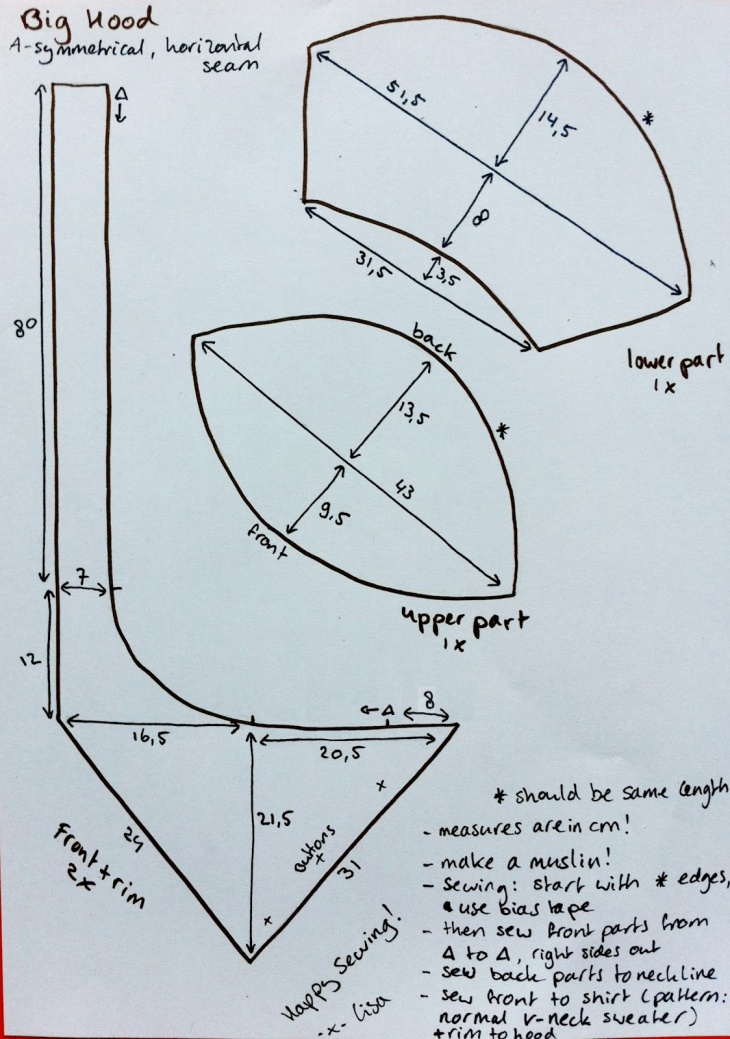 Big Hood
A-symmetrical, horizontal
seam
Δ
80
7
12
16,5
20,5
←Δ
8
21,5
24
31
buttons
x
x
x
Front + rim
2x
51,5
14,5
8
3,5
31,5
*
lower part
1x
back
13,5
43
9,5
front
*
upper part
1x
* should be same length
- measures are in cm!
- make a muslin!
- sewing: start with * edges,
• use bias tape
- then sew front parts from
Δ to Δ, right sides out
- sew back parts to neckline
- sew front to shirt (pattern:
normal v-neck sweater)
+ rim to hood
Happy Sewing!
-x- Lisa